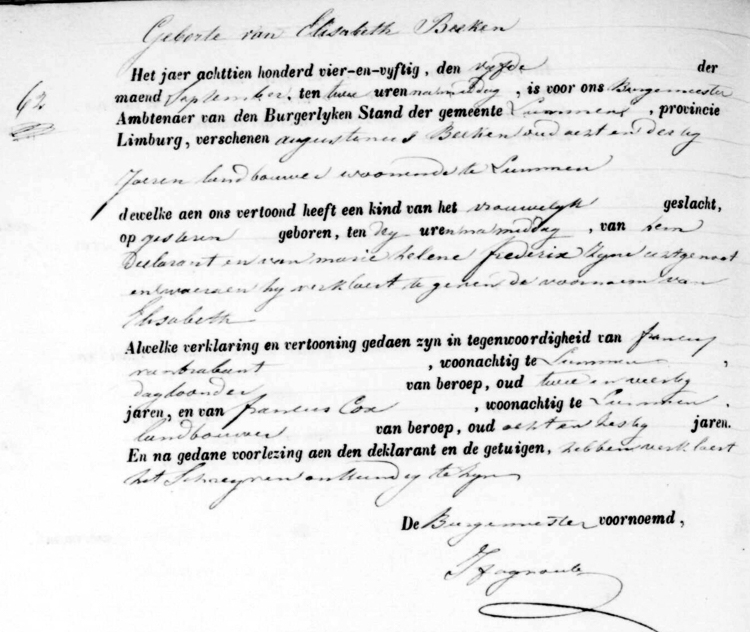 Geborte van Elisabeth Beeken
62
Het jaer achttien honderd vier-en-vyftig, den vyfde der
maend September, ten twee uren namiddag, is voor ons Burgemeester
Ambtenaer van den Burgerlyken Stand der gemeente Lummen, provincie
Limburg, verschenen augustinus Beeken oud acht en dertig
Jaeren landbouwer woonende te Lummen
dewelke aen ons vertoond heeft een kind van het vrouwelyk geslacht,
op gisteren geboren, ten dry uren namiddag, van hem
Declarant en van marie helene frederix zyne echtgenoot
en waeraen hy verklaert te geven de voornaem van
Elisabeth
Alwelke verklaring en vertooning gedaen zyn in tegenwoordigheid van francis
vanbrabant, woonachtig te Lummen,
dagloonder van beroep, oud twee en veertig
jaren, en van francus Cox, woonachtig te Lummen,
landbouwer van beroep, oud acht en jaren.
En na gedane voorlezing aen den deklarant en de getuigen, hebben verklaert
het Schryven onkundig te zyn
De Burgemeester voornoemd,